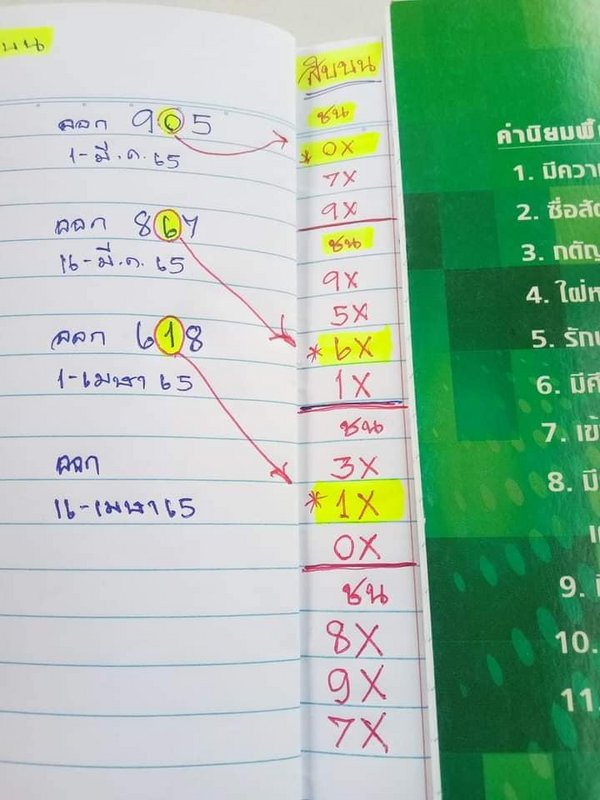 บน
ออก 905
1-มี.ค. 65
ออก 867
16-มี.ค. 65
ออก 618
1-เมษา 65
ออก
16-เมษา 65
สิบบน
ชน
* 0X
7X
9X
ชน
9X
5X
* 6X
1X
ชน
3X
* 1X
0X
ชน
8X
9X
7X
ค่านิยมพื้
1. มีควา
2. ซื่อสัต
3. กตัญ
4. ใฝ่ห
5. รัก
6. มีศี
7. เข้
8. มี
9.
10.
11.